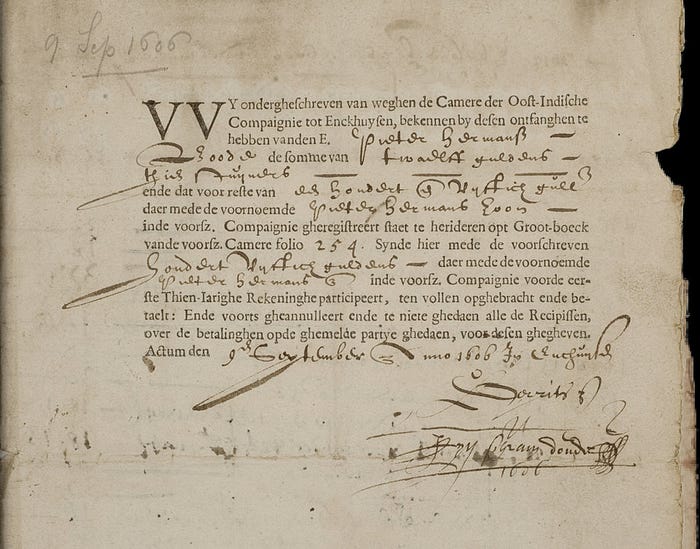 9 Sep 1606
VVY ondergheschreven van weghen de Camere der Oost-Indische
Compaignie tot Enckhuysen, bekennen by desen ontfanghen te
hebben vanden E. Pieter Hermansz
de somme van twaelff guldens
stuyvers
ende dat voor reste van hondert Vyftich gull
daer mede de voornoemde Pieter Hermans zoon
inde voorsz. Compaignie gheregistreert staet te herideren opt Groot-boeck
vande voorsz. Camere folio 254. Synde hier mede de voorschreven
hondert Vyftich guldens daer mede de voornoemde
Pieter Hermans inde voorsz. Compaignie voorde eer-
ste Thien-Iarighe Rekeninghe participeert, ten vollen opghebracht ende be-
taelt: Ende voorts gheannulleert ende te niete ghedaen alle de Recipissen,
over de betalinghen opde ghemelde partye ghedaen, voor desen ghegheven.
Actum den 9en September Anno 1606 In Enchuysen
Gerritsz
1606